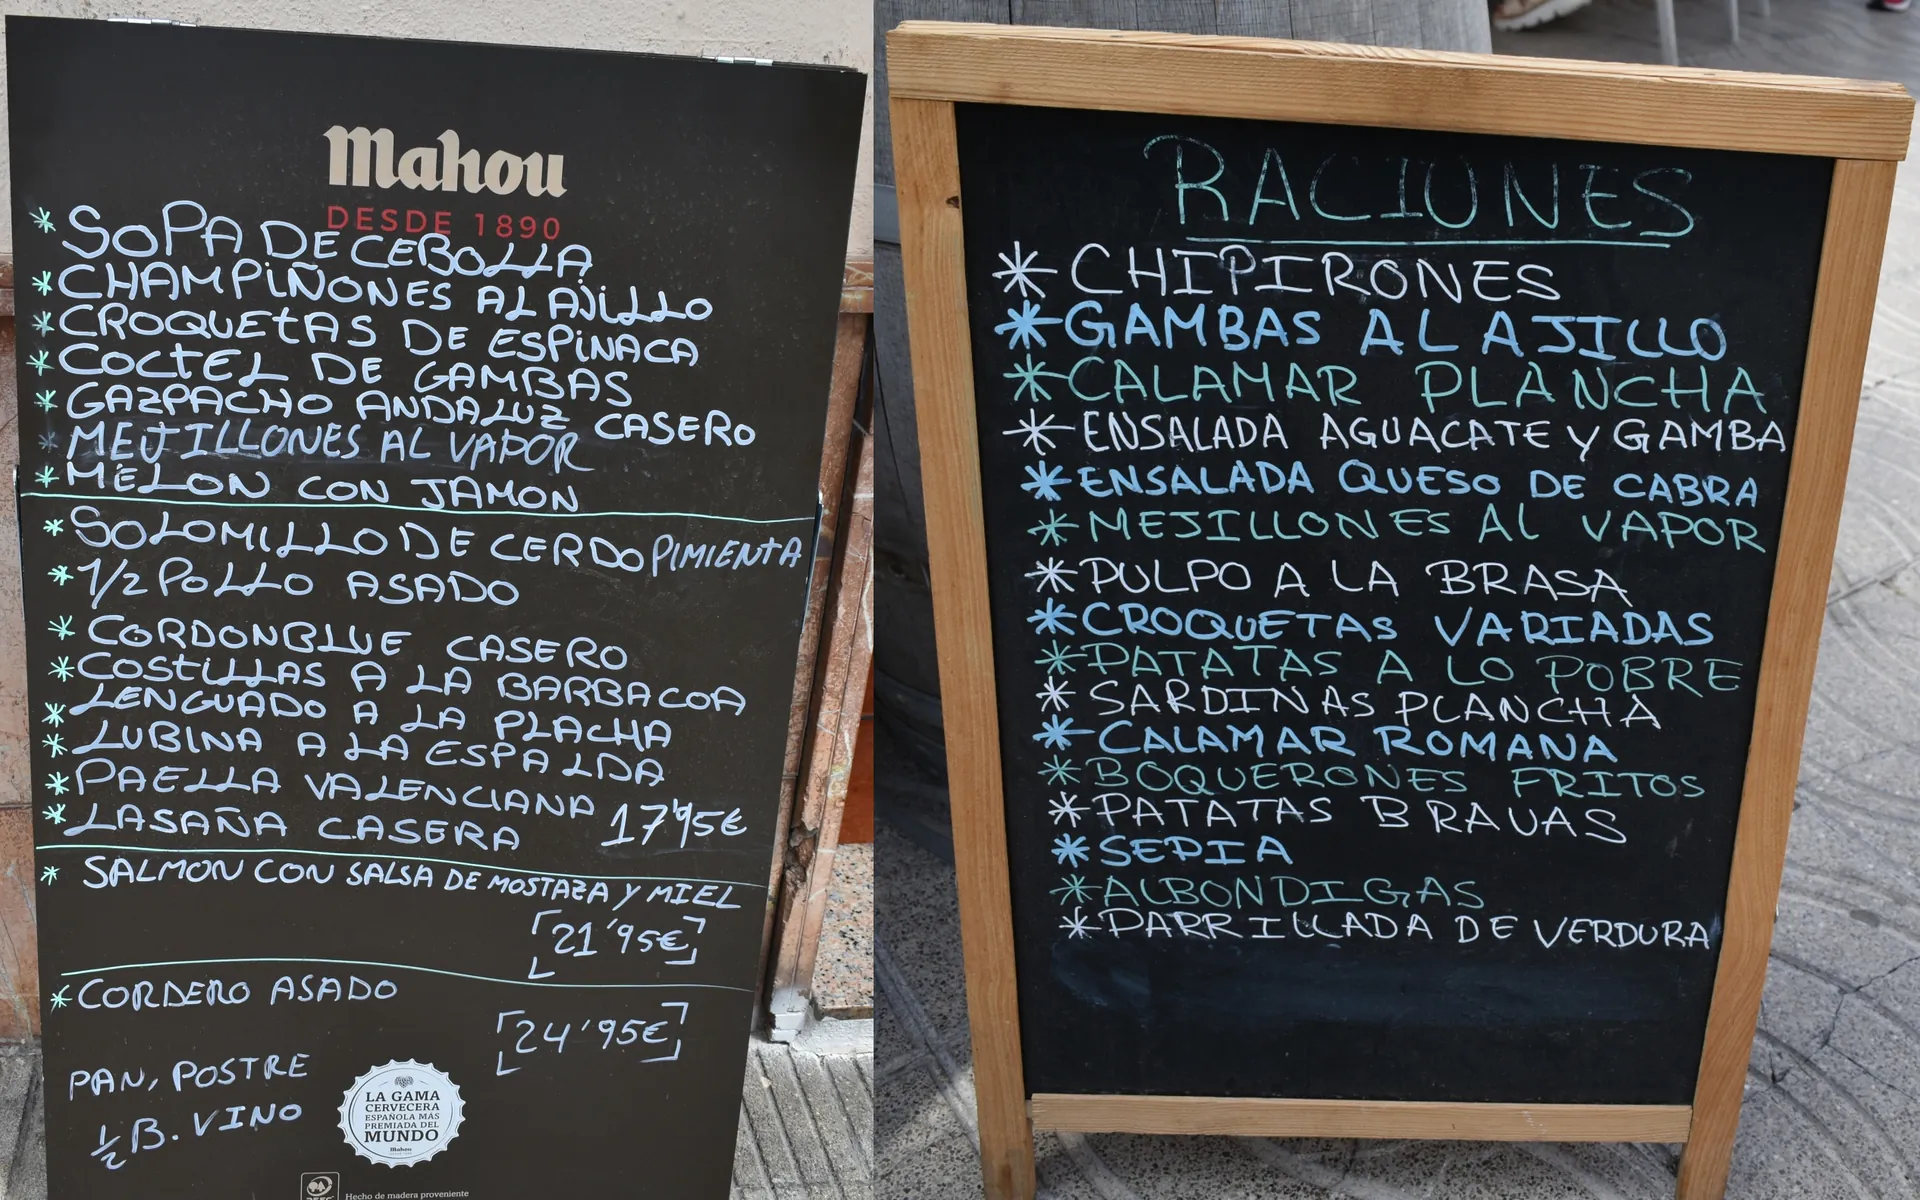 Mahou
DESDE 1890
* SOPA DE CEBOLLA
* CHAMPIÑONES AL AJILLO
* CROQUETAS DE ESPINACA
* COCTEL DE GAMBAS
* GAZPACHO ANDALUZ CASERO
* MEJILLONES AL VAPOR
* MELON CON JAMON
* SOLOMILLO DE CERDO PIMIENTA
* 1/2 POLLO ASADO
* CORDONBLUE CASERO
* COSTILLAS A LA BARBACOA
* LENGUADO A LA PLACHA
* LUBINA A LA ESPALDA
* PAELLA VALENCIANA
* LASAÑA CASERA 17'95€
* SALMON CON SALSA DE MOSTAZA Y MIEL
21'95€
* CORDERO ASADO
24'95€
PAN, POSTRE
1/2 B. VINO
LA GAMA
CERVECERA
ESPAÑOLA MÁS
PREMIADA DEL
MUNDO
Mahou
Hecho de madera proveniente
RACIONES
* CHIPIRONES
* GAMBAS AL AJILLO
* CALAMAR PLANCHA
* ENSALADA AGUACATE Y GAMBA
* ENSALADA QUESO DE CABRA
* MEJILLONES Al VAPOR
* PULPO A LA BRASA
* CROQUETAS VARIADAS
* PATATAS A LO POBRE
* SARDINAS PLANCHA
* CALAMAR ROMANA
* BOQUERONES FRITOS
* PATATAS BRAVAS
* SEPIA
* ALBONDIGAS
* PARRILLADA DE VERDURA